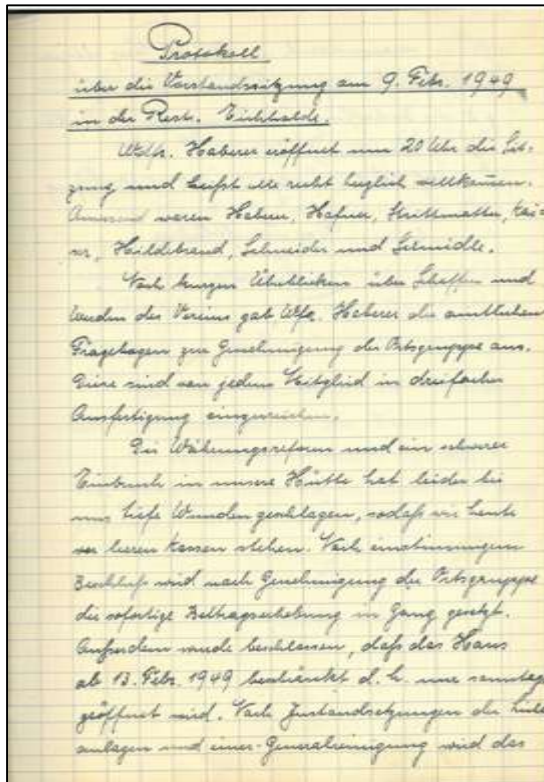 Protokoll
über die Vorstandssitzung am 9. Febr. 1949
in der Rest. Eichhalde.
Haberer eröffnet um 20 Uhr die Sit-
zung und heißt alle recht herzlich willkommen.
Anwesend waren Haberer, Hafner, Strittmatter, Kai-
ser, Hildebrand, Schneider und Schmidle.
Nach kurzen Überblicken über Schaffen und
Werden des Vereins gab Haberer die amtlichen
Fragebogen zur Genehmigung der Ortsgruppe aus.
Diese sind von jedem Mitglied in dreifacher
Ausfertigung einzureichen.
Die Währungsreform und ein schwerer
Einbruch in unsere Hütte hat leider bei
uns tiefe Wunden geschlagen, sodaß wir heute
vor leeren Kassen stehen. Nach einstimmigem
Beschluß wird nach Genehmigung der Ortsgruppe
die sofortige Beitragserhebung in Gang gesetzt.
Außerdem wurde beschlossen, daß das Haus
ab 13. Febr. 1949 beschränkt d. h. nur sonntags
geöffnet wird. Nach Instandsetzungen der
anlagen und einer Generalreinigung wird das